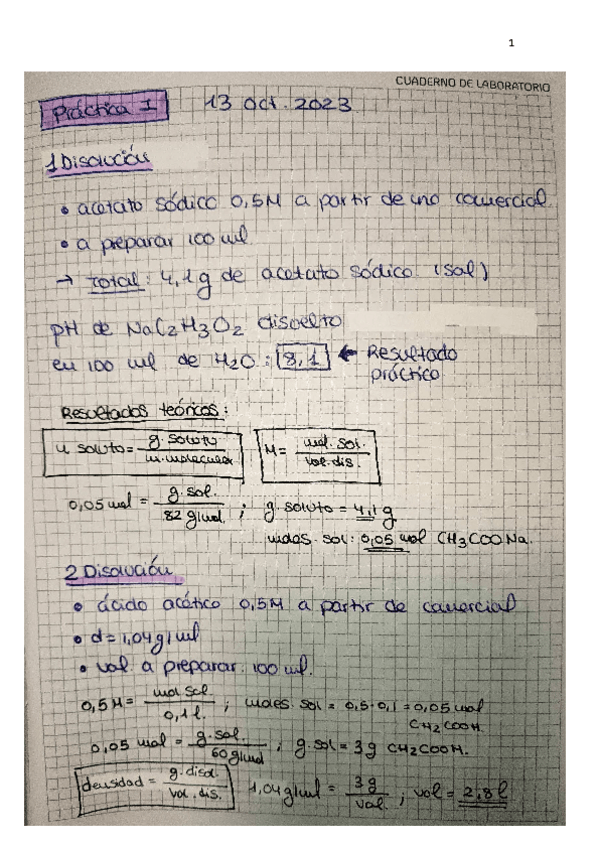 1
CUADERNO DE LABORATORIO
Práctica 1 13 oct. 2023
1 Disolución
• acetato sódico 0,5M a partir de uno comercial
• a preparar 100 ml
→ Total: 4,1g de acetato sódico (sal)
pH de NaC2H3O2 disuelto
en 100 ml de H2O: 8,1 ← Resultado
práctico
Resultados teóricos:
n soluto = g. soluto / m. molecular M = mol. sol. / vol. dis.
0,05 mol = g. sol. / 82 g/mol. ; g. soluto = 4,1 g
moles. sol: 0,05 mol CH3COONa.
2 Disolución
• ácido acético 0,5M a partir de comercial
• d = 1,04g/ml
• vol. a preparar. 100 ml.
0,5M = mol sol. / 0,1 l. ; moles. sol = 0,5·0,1 = 0,05 mol
CH2COOH.
0,05 mol = g. sol. / 60 g/mol ; g. sol = 3g CH2COOH.
densidad = g. disol. / vol. dis. 1,04g/ml = 3g / vol. ; vol = 2,8 l